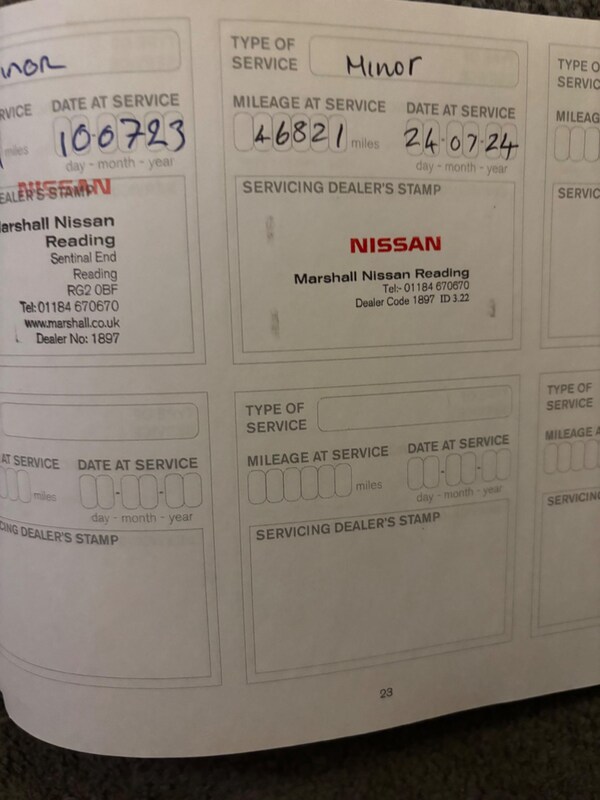 inor
RVICE DATE AT SERVICE
miles 10·0723
day - month - year
EALER'S STAMP
NISSAN
arshall Nissan
Reading
Sentinal End
Reading
RG2 0BF
Tel: 01184 670670
www.marshall.co.uk
Dealer No: 1897
AT SERVICE DATE AT SERVICE
miles
day - month - year
CING DEALER'S STAMP
TYPE OF
SERVICE Minor
MILEAGE AT SERVICE DATE AT SERVICE
46821 miles 24·07·24
day - month - year
SERVICING DEALER'S STAMP
NISSAN
Marshall Nissan Reading
Tel:- 01184 670670
Dealer Code 1897 ID 3.22
TYPE OF
SERVICE
MILEAGE AT SERVICE DATE AT SERVICE
miles
day - month - year
SERVICING DEALER'S STAMP
TYPE O
SERVIC
MILEAG
SERVIC
TYPE OF
SERVICE
MILEAGE A
SERVICING
23